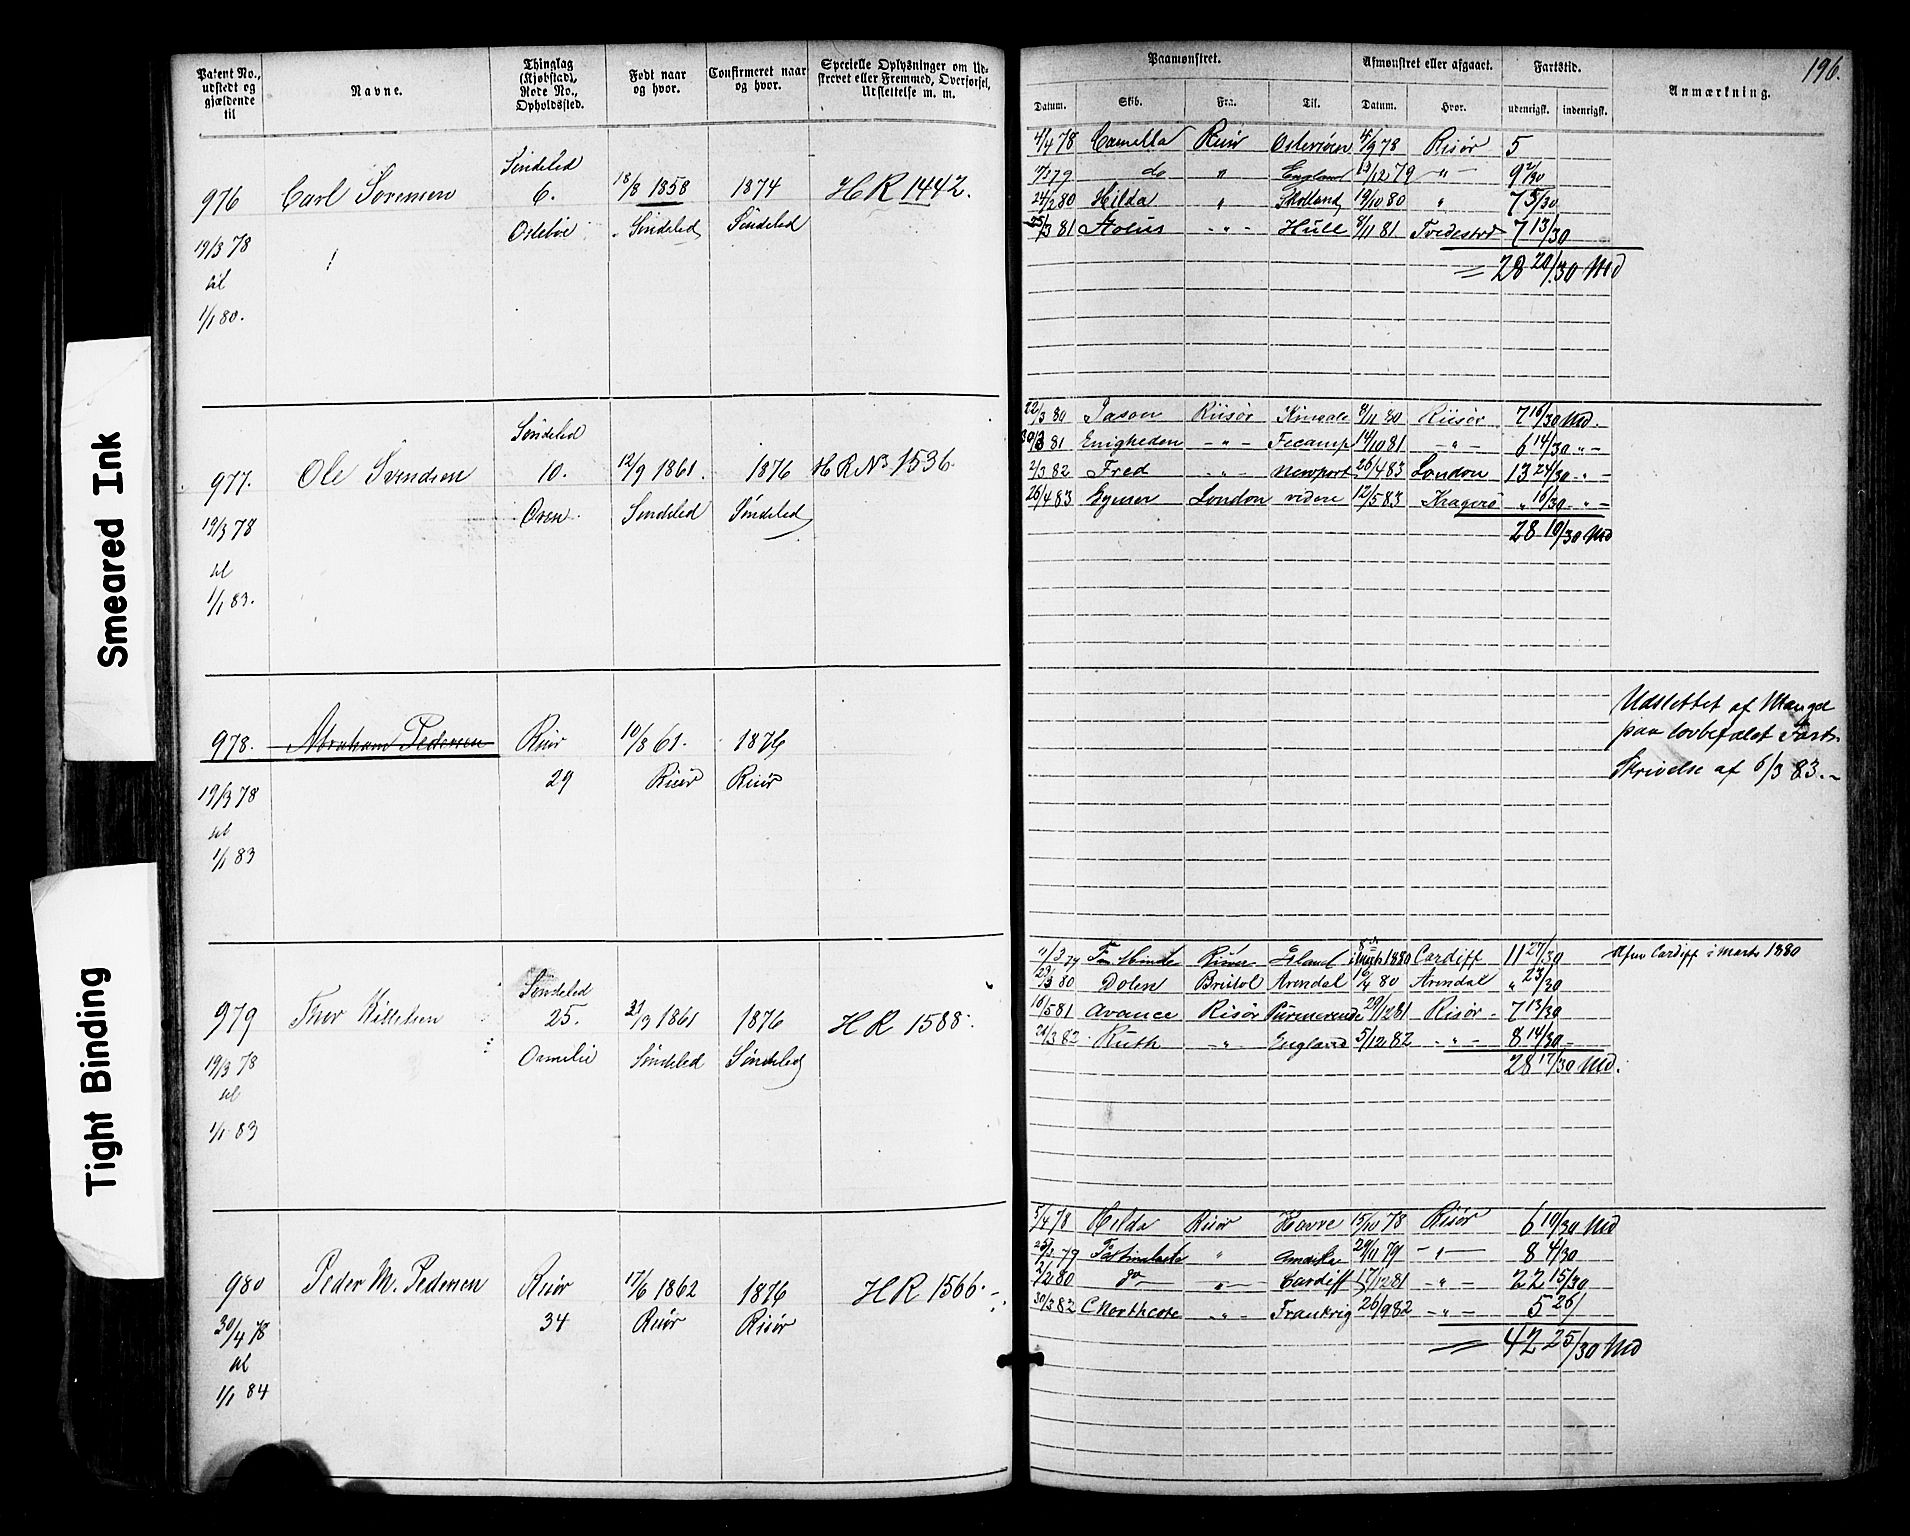 Patent No., udstedt og gjældende til
Navne.
Thinglag (Kjøbstad), Rode No., Opholdssted.
Født naar og hvor.
Confirmeret naar og hvor.
Specielle Oplysninger om Udskrevet eller Fremmed, Overførsel, Udslettelse m. m.
Paamønstret.
Datum.
Skib.
Fra.
Til.
Afmønstret eller afgaaet.
Datum.
Hvor.
Fartstid.
udenrigst.
indenrigst.
Anmærkning.
196.
976 Carl Sørensen Søndeled 6. 18/8 1858 1874 HR 1442.
Søndeled Søndeled
19/3 78
til
1/1 80.
4/4 78 Camella Risør Østersøen 78 Risør 5
79 do " England 13/12 79 " 9 2/30
24/2 80 Hilda " Skotland 19/10 80 " 7 5/30
25/3 81 Æolus " Hull 8/11 81 Tvedestrd 7 13/30
28 20/30 Md
977. Ole Svendsen Søndeled 10. 12/9 1861. 1876 HR No 1536.
Søndeled Søndeled
19/3 78
til
1/1 83.
22/3 80 Jason Riisør Kinsale 8/11 80 Riisør 7 16/30 Md.
30/3 81 Enigheden " Fecamp 14/10 81 " 6 14/30 "
2/3 82 Fred " Newport 26/4 83 London 13 24/30 "
26/4 83 London videre 12/5 83 Kragerø " 16/30 "
28 10/30 Md
978. Abraham Pedersen Risør 10/8 61. 1876
29 Risør Risør
19/3 78
til
1/1 83
Udslettet af Mangel
paa lovbefalet Fart.
Skrivelse af 6/3 83.
979 Søndeled 25. 1861 1876 HR 1588.
Søndeled Søndeled
19/3 78
til
1/1 83
Risør 1880 Cardiff 11 27/30 Cardiff i Marts 1880
29/3 80 Bristol Arendal 80 Arendal " 23/30
16/5 81 Avance Risør 29/12 81 Risør 7 13/30
82 Ruth " England 5/12 82 " 8 14/30
28 17/30 Md.
980 Peder M. Pedersen Risør 17/6 1862 1876 HR 1566.
34 Risør Risør
30/4 78
til
1/1 84
5/4 78 Hilda Risør Havre 15/10 78 Risør 6 10/30 Md
79 " Amerika 29/11 79 " 8 4/30
2/2 80 do " Cardiff 17/12 81 " 22 15/30
30/3 82 C Northcote " Frankrig 26/9 82 " 5 26/
42 25/30 Md
Smeared Ink
Tight Binding